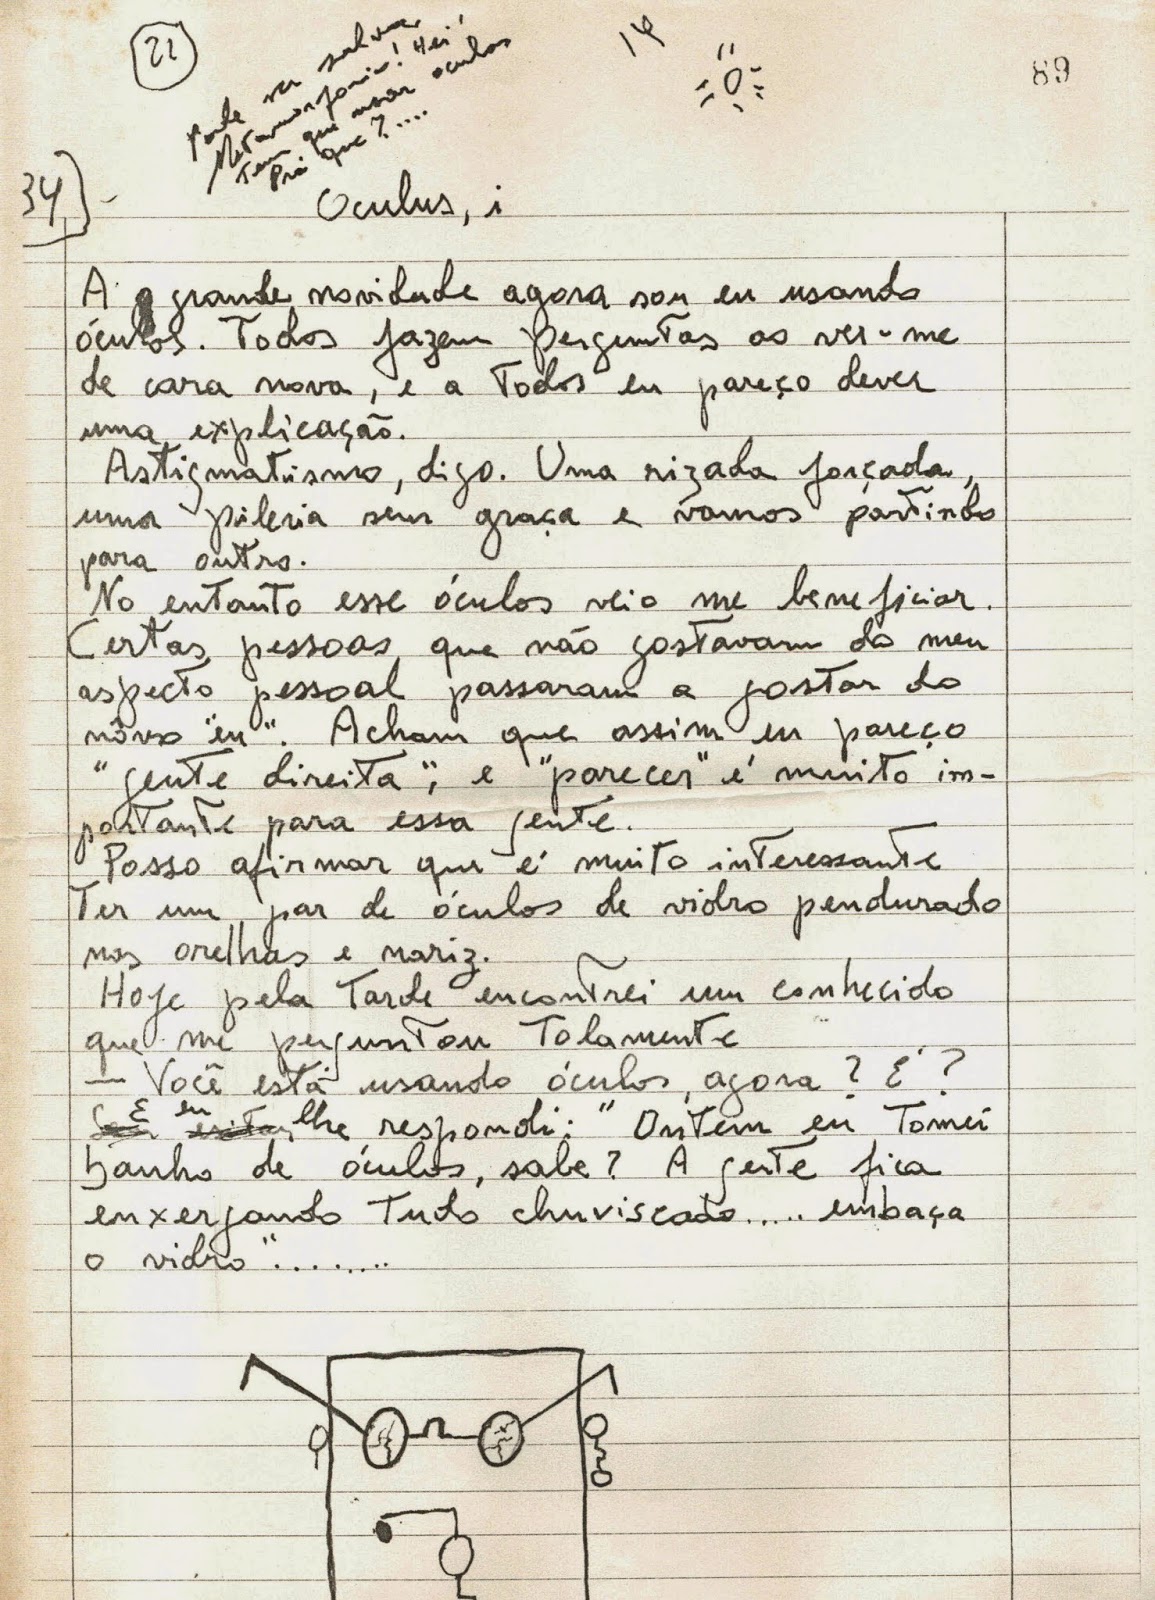 21
Pode ser salvar
Metamorfosio! Hei!
Tem que usar oculos
Prá que?....
14
89
34)-
Oculus, i
A grande novidade agora sou eu usando
óculos. Todos fazem perguntas ao ver-me
de cara nova, e a todos eu pareço dever
uma explicação.
Astigmatismo, digo. Uma rizada forçada,
uma piléria sem graça e vamos partindo
para outro.
No entanto esse óculos veio me beneficiar.
Certas pessoas que não gostavam do meu
aspecto pessoal passaram a gostar do
nôvo "eu". Acham que assim eu pareço
"gente direita", e "parecer" é muito im-
portante para essa gente.
Posso afirmar que é muito interessante
ter um par de óculos de vidro pendurado
nas orelhas e nariz.
Hoje pela tarde encontrei um conhecido
que me perguntou tolamente
— Você está usando óculos, agora? É?
E eu lhe respondi: "Ontem eu tomei
banho de óculos, sabe? A gente fica
enxergando tudo chuviscado..... embaça
o vidro"........